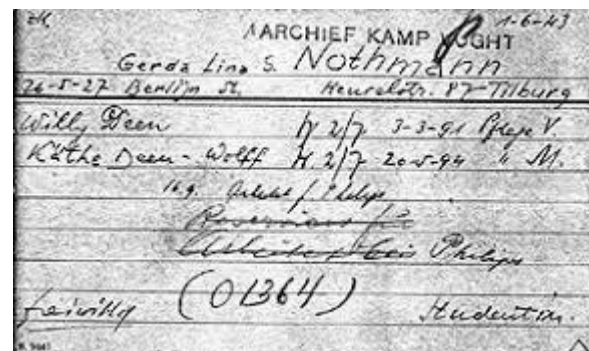 ZK 1-6-43
AARCHIEF KAMP VUGHT
Gerda Lina S. Nothmann
26-5-27 Berlijn St. Heuvelstr. 87 Tilburg
Willy Deen 2/7 3-3-91 Pflege V.
Käthe Deen - Wolff 2/7 20-5-94 " M.
16.9. Arbeitet f. Philips
Philips
(01364)
freiwillig Studentin.